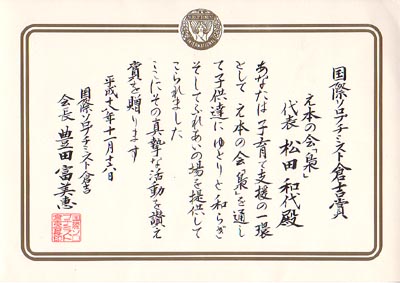 国際ソロプチミスト倉吉賞
え本の会「梟」
代表 松田和代殿
あなたは 子育て支援の一環
として え本の会「梟」を通し
て子供達にゆとりと和らぎ
そしてふれあいの場を提供して
こられました
ここにその真摯な活動を讃え
賞を贈ります
平成十八年十一月十八日
国際ソロプチミスト倉吉
会長 豊田富美恵